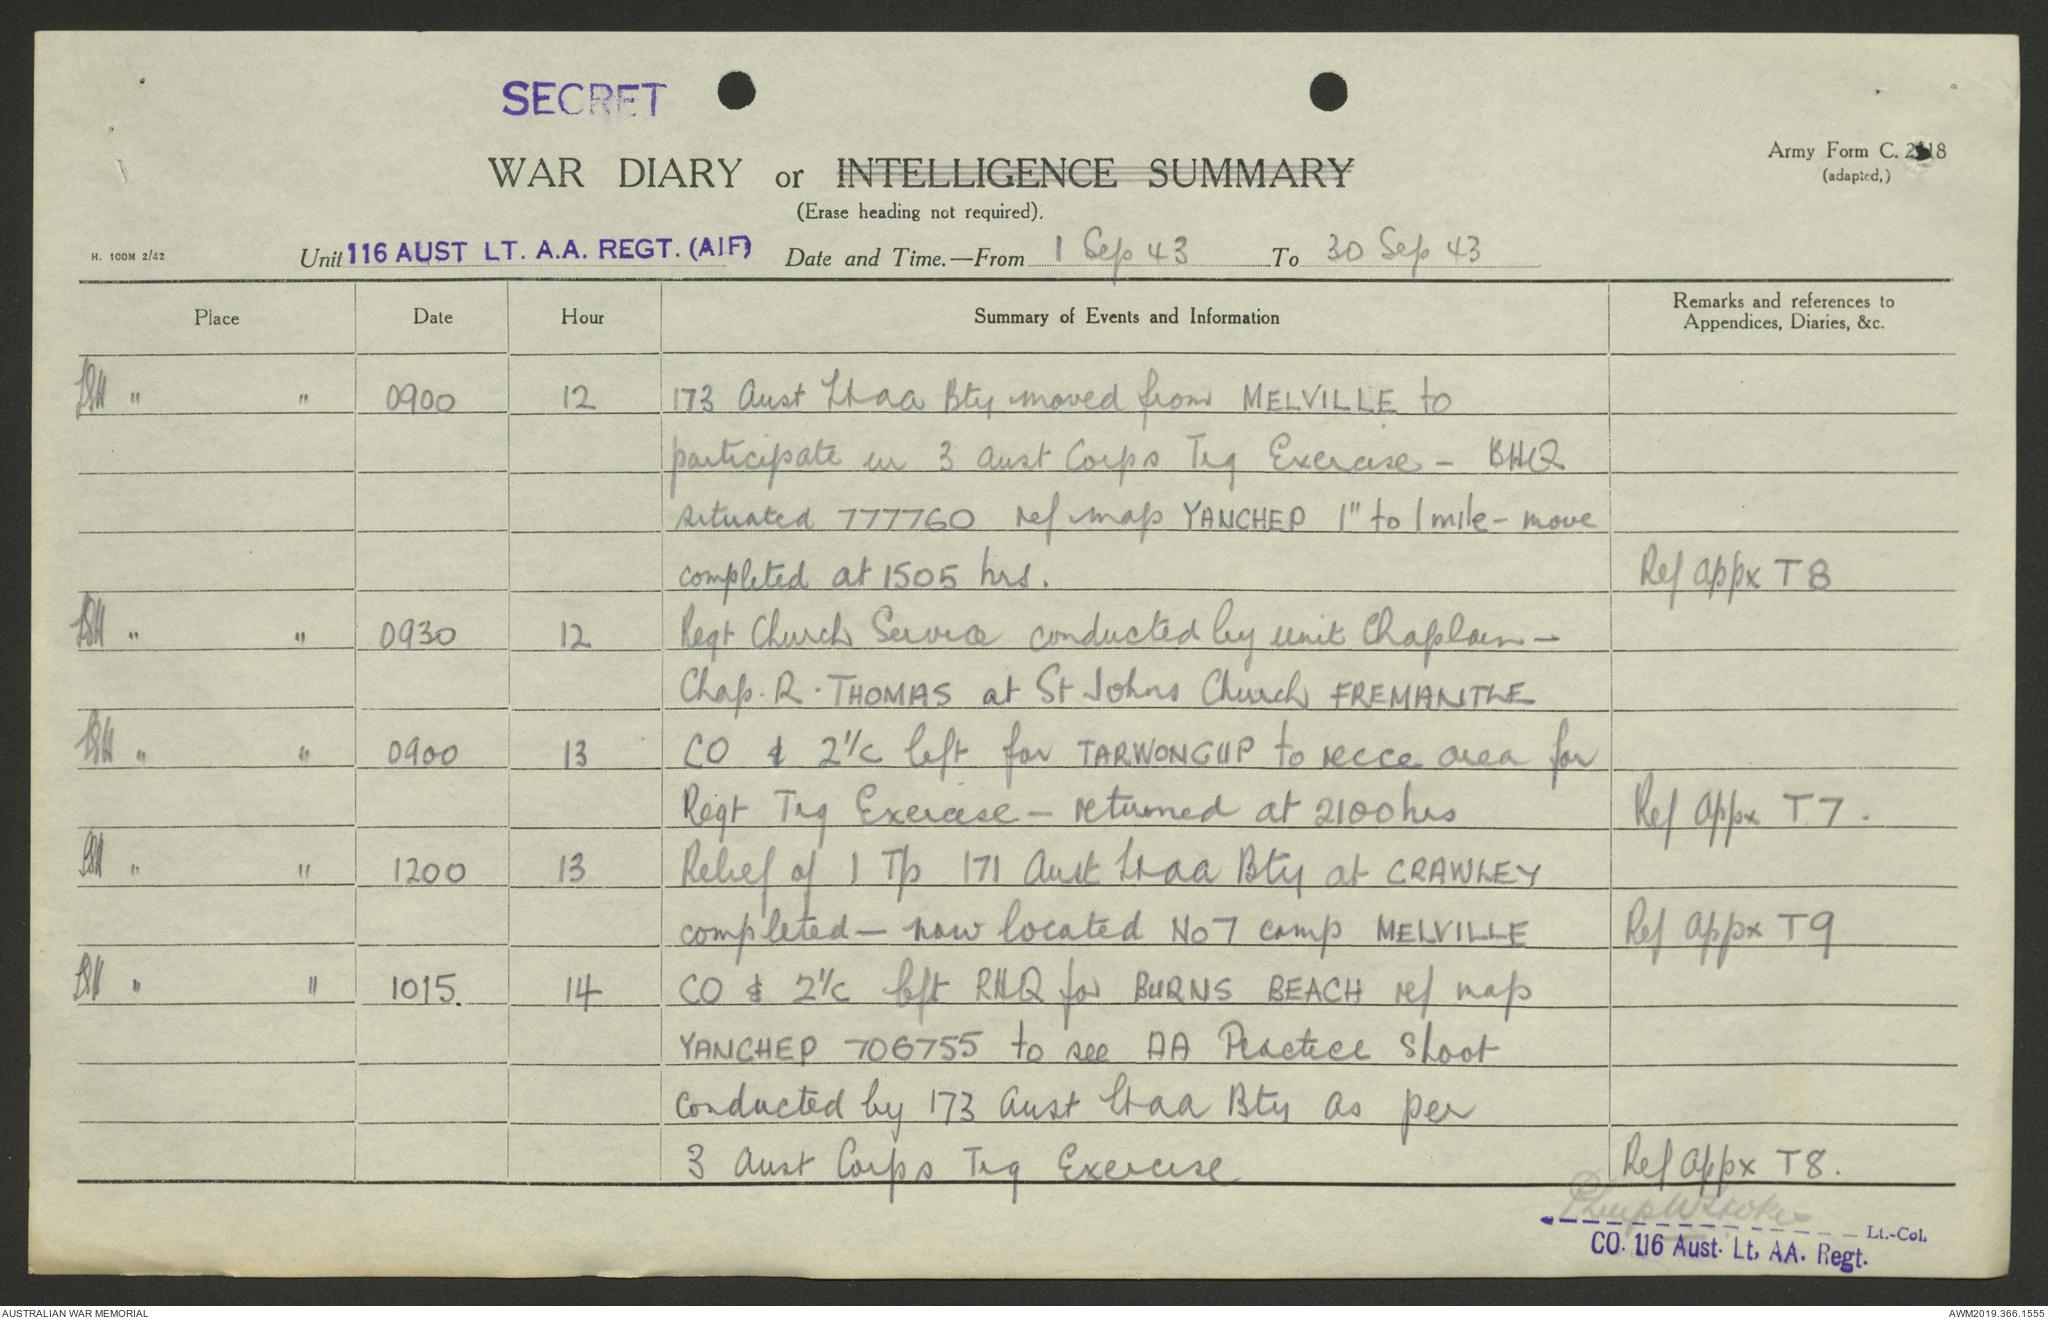 SECRET
WAR DIARY or INTELLIGENCE SUMMARY
(Erase heading not required).
Army Form C. 2118
(adapted,)
H. 100M 2/42
Unit 116 AUST LT. A.A. REGT. (AIF) Date and Time.—From 1 Sep 43 To 30 Sep 43
Place Date Hour Summary of Events and Information Remarks and references to
Appendices, Diaries, &c.
" " 0900 12 173 Aust Ltaa Bty moved from MELVILLE to
participate in 3 Aust Corps Trg Exercise - BHQ
situated 777760 ref map YANCHEP 1" to 1 mile - move
completed at 1505 hrs. Ref appx T8
" " 0930 12 Regt Church Service conducted by unit Chaplain -
Chap. R. THOMAS at St Johns Church FREMANTLE
" " 0900 13 CO & 2 i/c left for TARWONGUP to recce area for
Regt Trg Exercise - returned at 2100 hrs Ref appx T7.
" " 1200 13 Relief of 1 Tp 171 Aust Ltaa Bty at CRAWLEY
completed - now located No 7 camp MELVILLE Ref appx T9
" " 1015. 14 CO & 2 i/c left RHQ for BURNS BEACH ref map
YANCHEP 706755 to see AA Practice Shoot
conducted by 173 Aust Ltaa Bty as per
3 Aust Corps Trg Exercise Ref appx T8.
Lt.-Col.
CO. 116 Aust. Lt. AA. Regt.
AUSTRALIAN WAR MEMORIAL
AWM2019.366.1555